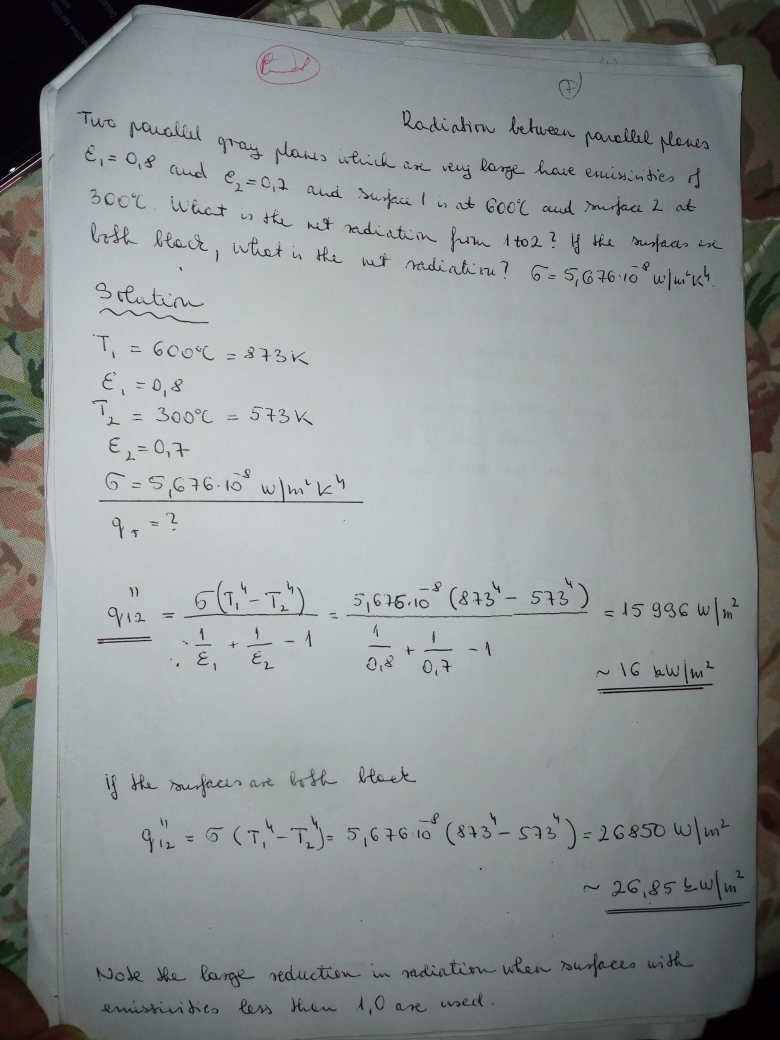 7
Radiation between parallel planes
Two parallel gray planes which are very large have emissivities of
ε₁ = 0,8 and ε₂ = 0,7 and surface 1 is at 600°C and surface 2 at
300°C. What is the net radiation from 1 to 2? If the surfaces are
both black, what is the net radiation? σ = 5,676·10⁻⁸ W/m²K⁴.
Solution
T₁ = 600°C = 873K
ε₁ = 0,8
T₂ = 300°C = 573K
ε₂ = 0,7
σ = 5,676·10⁻⁸ W/m²K⁴
q = ?
q₁₂'' = σ(T₁⁴ - T₂⁴) / (1/ε₁ + 1/ε₂ - 1) = 5,676·10⁻⁸ (873⁴ - 573⁴) / (1/0,8 + 1/0,7 - 1) = 15996 W/m²
~ 16 kW/m²
if the surfaces are both black
q₁₂'' = σ (T₁⁴ - T₂⁴) = 5,676·10⁻⁸ (873⁴ - 573⁴) = 26850 W/m²
~ 26,85 kW/m²
Note the large reduction in radiation when surfaces with
emissivities less than 1,0 are used.